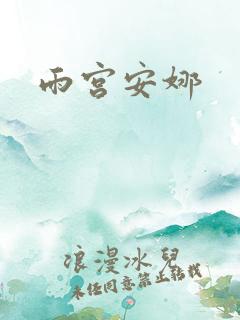 雨宫安娜
浪漫冰兒
未经同意禁止转载